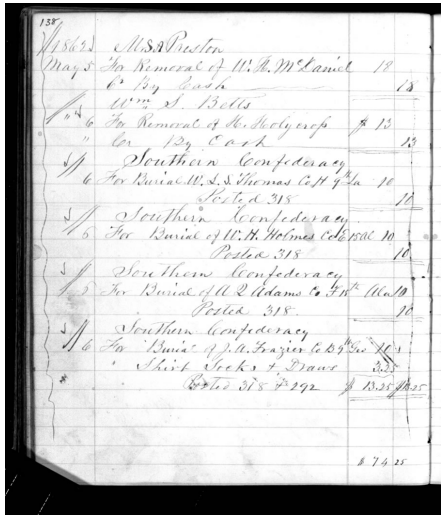 138
1862 M. S. & Preston
May 5 For Removal of W. H. McDaniel 18
Cr By Cash 18
Wm S. Betts
" 6 For Removal of H. Holycrop $ 13
" Cr By Cash 13
Southern Confederacy
6 For Burial W. L. S. Thomas Co H 9th La 10
Posted 318 10
Southern Confederacy
6 For Burial of W. H. Holmes Co E 15 Al 10
Posted 318 10
Southern Confederacy
5 For Burial of A Q Adams Co F 15th Ala 10
Posted 318. 10
Southern Confederacy
6 For Burial of J. A. Frazier Co B 9th Geo 10
" Shirt Socks & Draws 3.25
Posted 318 & 292 $ 13.25 $13.25
$ 74 25